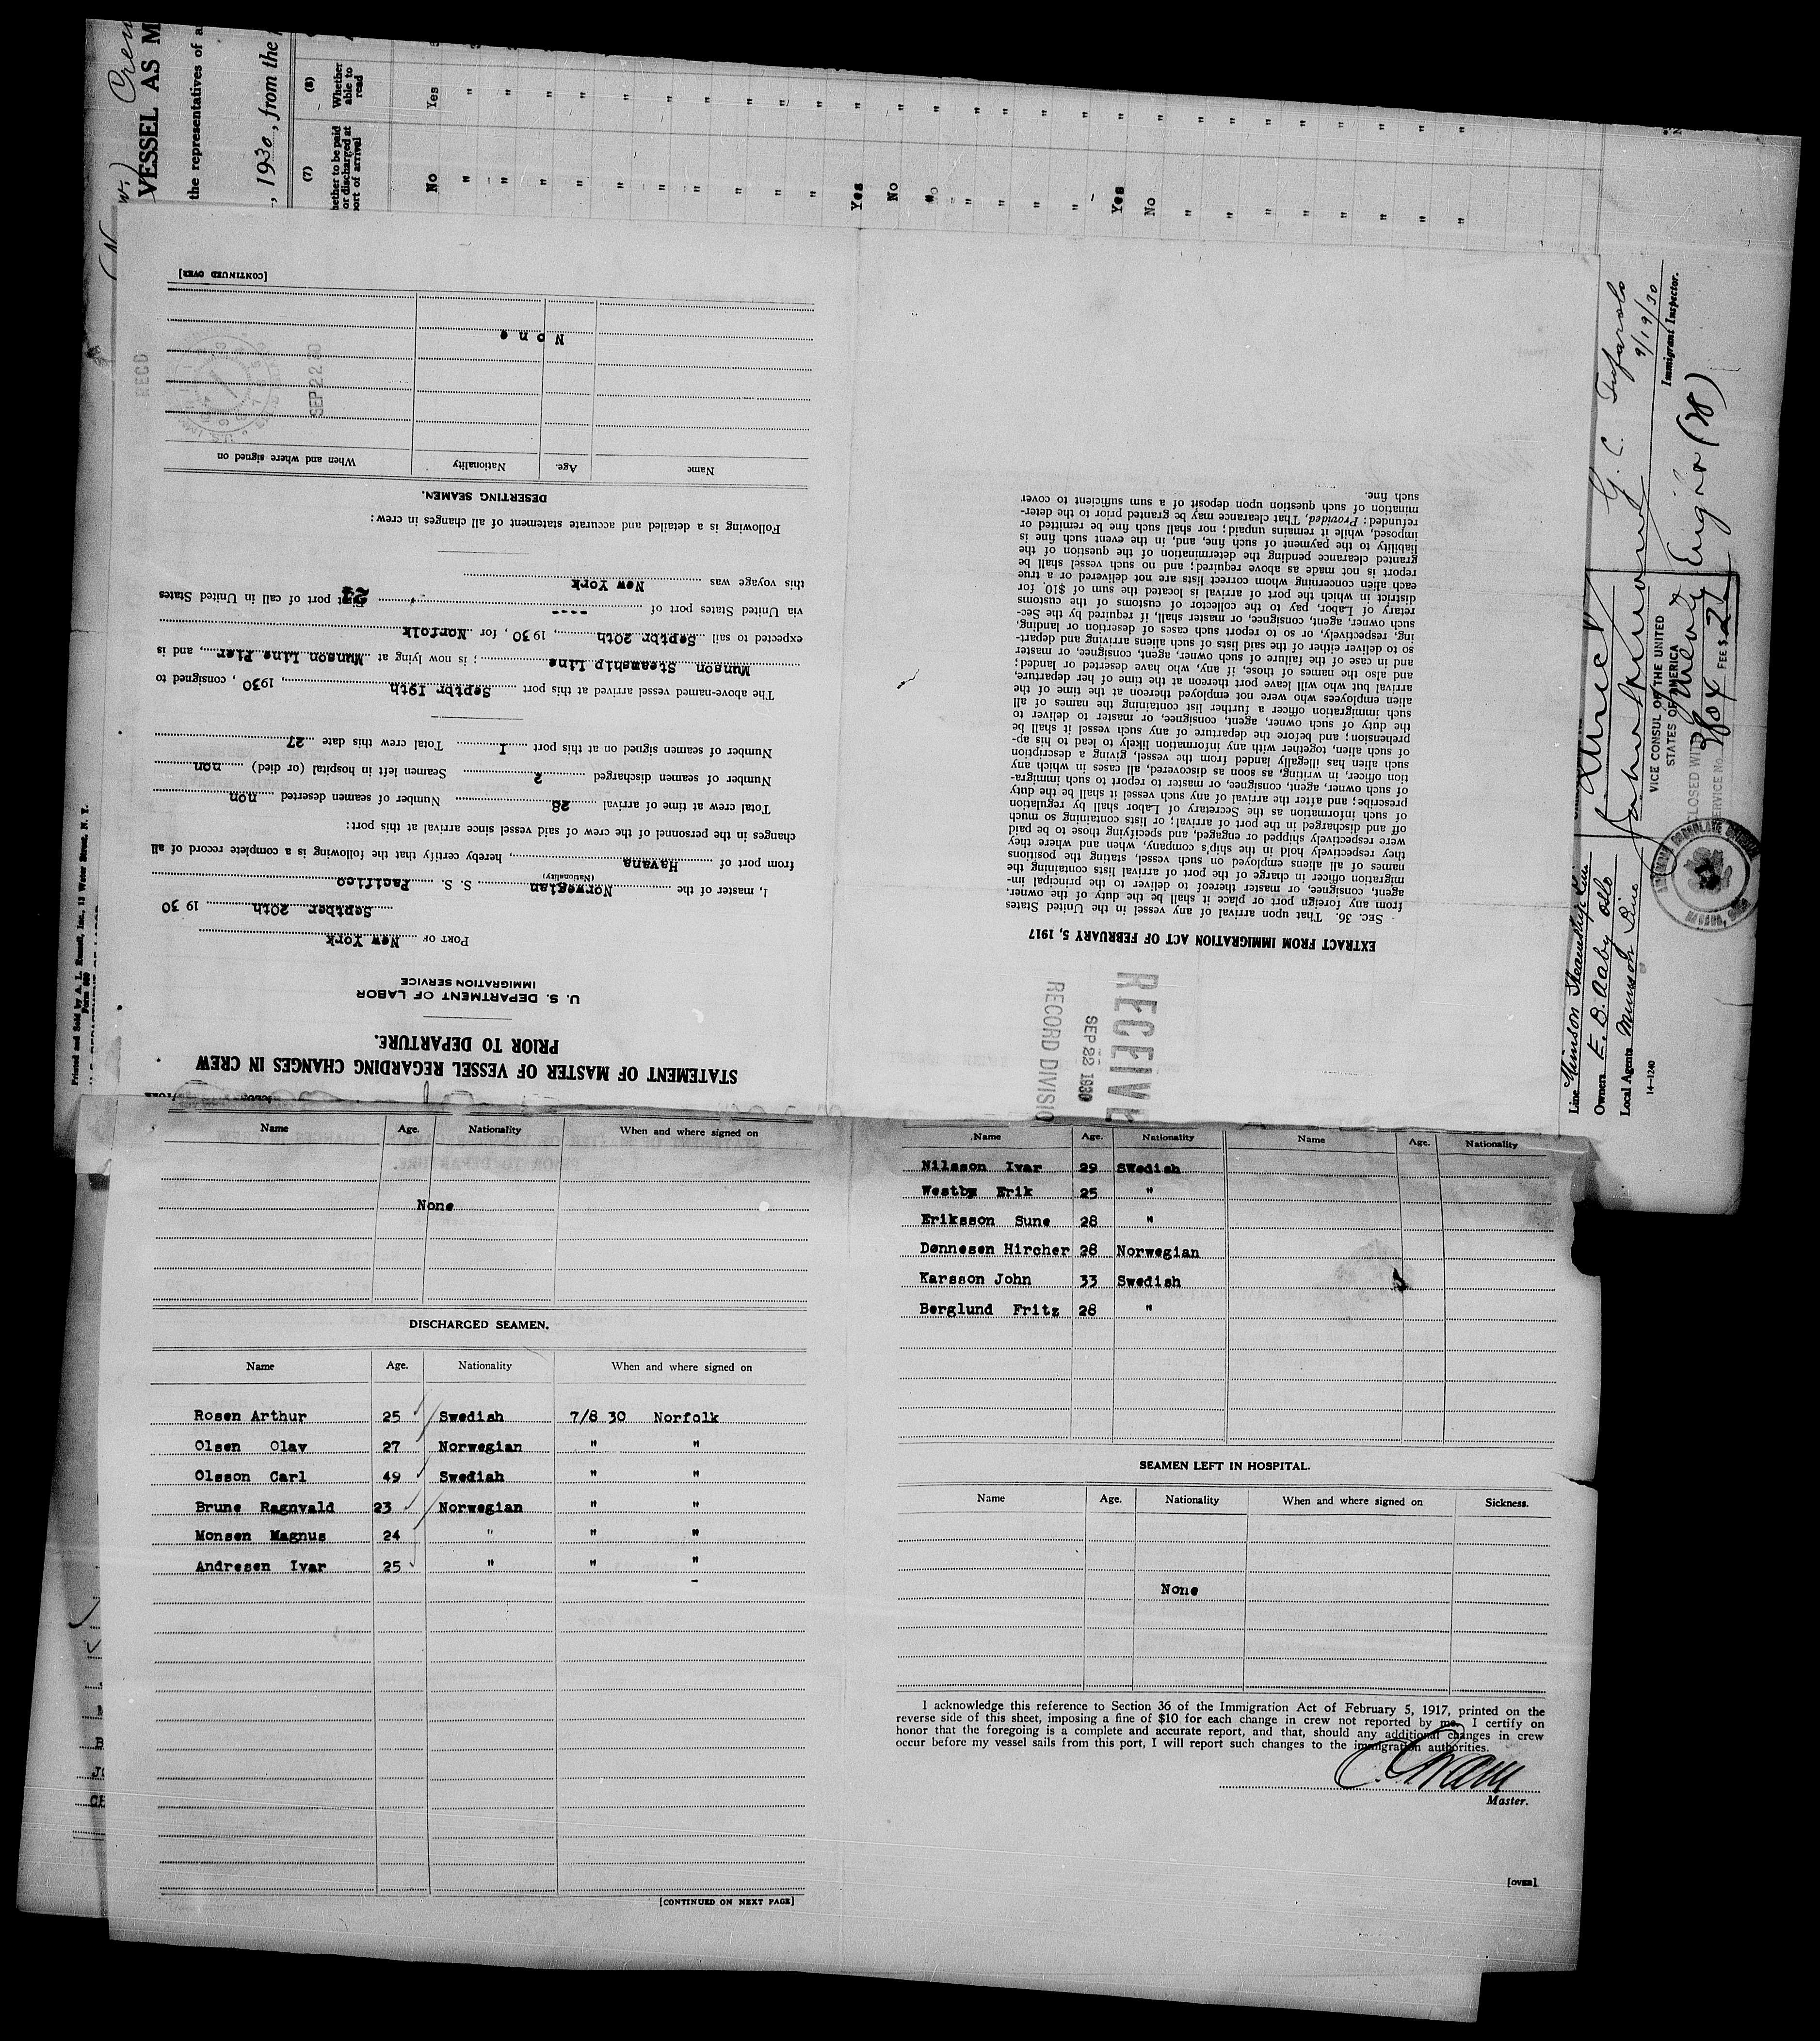 STATEMENT OF MASTER OF VESSEL REGARDING CHANGES IN CREW
PRIOR TO DEPARTURE.
U. S. DEPARTMENT OF LABOR
IMMIGRATION SERVICE
PORT OF New York
Septber 20th 1930
I, master of the Norwegian S. S. Pacifico
(Nationality)
from port of Havana, hereby certify that the following is a complete record of all
changes in the personnel of the crew of said vessel since arrival at this port:
Total crew at time of arrival 28 Number of seamen deserted non
Number of seamen discharged 2 Seamen left in hospital (or died) non
Number of seamen signed on at this port I Total crew this date 27
The above-named vessel arrived at this port Septbr 19th, 1930, consigned to
Munson Steamship Line; is now lying at Munson Line Pier, and is
expected to sail Septbr 20th, 1930, for Norfolk
via United States port of ---- port of call in United States
this voyage was New York
Following is a detailed and accurate statement of all changes in crew:
DESERTING SEAMEN.
Name Age. Nationality When and where signed on
None
[CONTINUED OVER]
RECD
SEP 22 30
EXTRACT FROM IMMIGRATION ACT OF FEBRUARY 5, 1917
Sec. 36. That upon arrival of any vessel in the United States
from any foreign port or place it shall be the duty of the owner,
agent, consignee, or master thereof to deliver to the principal im-
migration officer in charge of the port of arrival lists containing the
names of all aliens employed on such vessel, stating the positions
they respectively hold in the ship's company, when and where they
were respectively shipped or engaged, and specifying those to be paid
off and discharged in the port of arrival; or lists containing so much
of such information as the Secretary of Labor shall by regulation
prescribe; and after the arrival of any such vessel it shall be the duty
of such owner, agent, consignee, or master to report to such immigra-
tion officer, in writing, as soon as discovered, all cases in which any
such alien has illegally landed from the vessel, giving a description
of such alien, together with any information likely to lead to his ap-
prehension; and before the departure of any such vessel it shall be
the duty of such owner, agent, consignee, or master to deliver to
such immigration officer a further list containing the names of all
alien employees who were not employed thereon at the time of the
arrival but who will leave port thereon at the time of her departure,
and also the names of those, if any, who have deserted or landed;
and in case of the failure of such owner, agent, consignee, or master
so to deliver either of the said lists of such aliens arriving and depart-
ing, respectively, or so to report such cases of desertion or landing,
such owner, agent, consignee, or master, shall, if required by the Sec-
retary of Labor, pay to the collector of customs of the customs
district in which the port of arrival is located the sum of $10. for
each alien concerning whom correct lists are not delivered or a true
report is not made as above required; and no such vessel shall be
granted clearance pending the determination of the question of the
liability to the payment of such fine, and, in the event such fine is
imposed, while it remains unpaid; nor shall such fine be remitted or
refunded: Provided, That clearance may be granted prior to the deter-
mination of such question upon deposit of a sum sufficient to cover
such fine.
RECEIVE
SEP 22 1930
RECORD DIVISIO
Name Age. Nationality When and where signed on
None
DISCHARGED SEAMEN.
Name Age. Nationality When and where signed on
Rosen Arthur 25 Swedish 7/8 30 Norfolk
Olsen Olav 27 Norwegian " "
Olsson Carl 49 Swedish " "
Brune Ragnvald 23 Norwegian " "
Monsen Magnus 24 " " "
Andresen Ivar 25 " " "
[CONTINUED ON NEXT PAGE]
Name Age. Nationality Name Age. Nationality
Nilsson Ivar 29 Swedish
Westby Erik 25 "
Eriksson Sune 28 "
Dønnesen Hircher 28 Norwegian
Karsson John 33 Swedish
Berglund Fritz 28 "
SEAMEN LEFT IN HOSPITAL.
Name Age. Nationality When and where signed on Sickness.
None
I acknowledge this reference to Section 36 of the Immigration Act of February 5, 1917, printed on the
reverse side of this sheet, imposing a fine of $10 for each change in crew not reported by me. I certify on
honor that the foregoing is a complete and accurate report, and that, should any additional changes in crew
occur before my vessel sails from this port, I will report such changes to the immigration authorities.
Master.
[OVER]
Printed and Sold by A. L. Russell, Inc., 12 Water Street, N. Y.
Form 689
VESSEL AS M
the representatives of a
, 1930, from the
(7) (8)
Whether
able to
read
whether to be paid
or discharged at
port of arrival
No Yes
Yes
No
Yes
No
Line Munson Steamship Line
Owners E. B. Aaby Oslo
Local Agents Munson Line
14—1240
VICE CONSUL OF THE UNITED
STATES OF AMERICA
SERVICE No.
FEE $
9/19/30
Immigrant Inspector.
Eight (28)